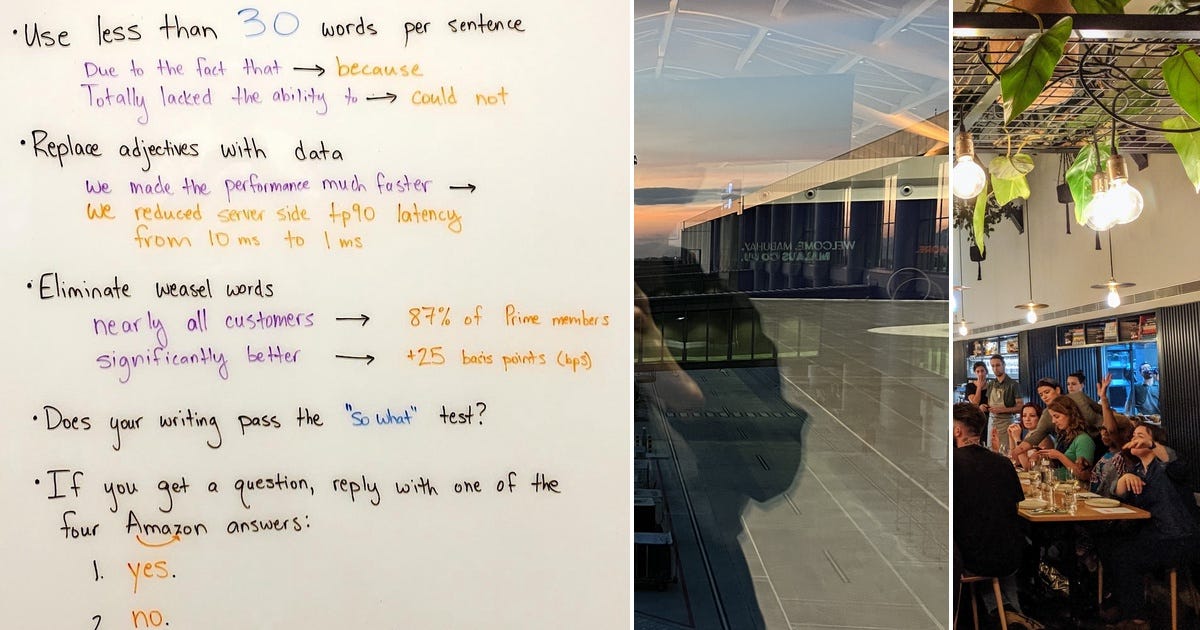 •Use less than 30 words per sentence
Due to the fact that → because
Totally lacked the ability to → could not
•Replace adjectives with data
we made the performance much faster →
we reduced server side tp90 latency
from 10 ms to 1 ms
•Eliminate weasel words
nearly all customers → 87% of Prime members
significantly better → +25 basis points (bps)
•Does your writing pass the "so what" test?
•If you get a question, reply with one of the
four Amazon answers:
1. yes.
2 no.
WELCOME. MABUHAY.
MORE